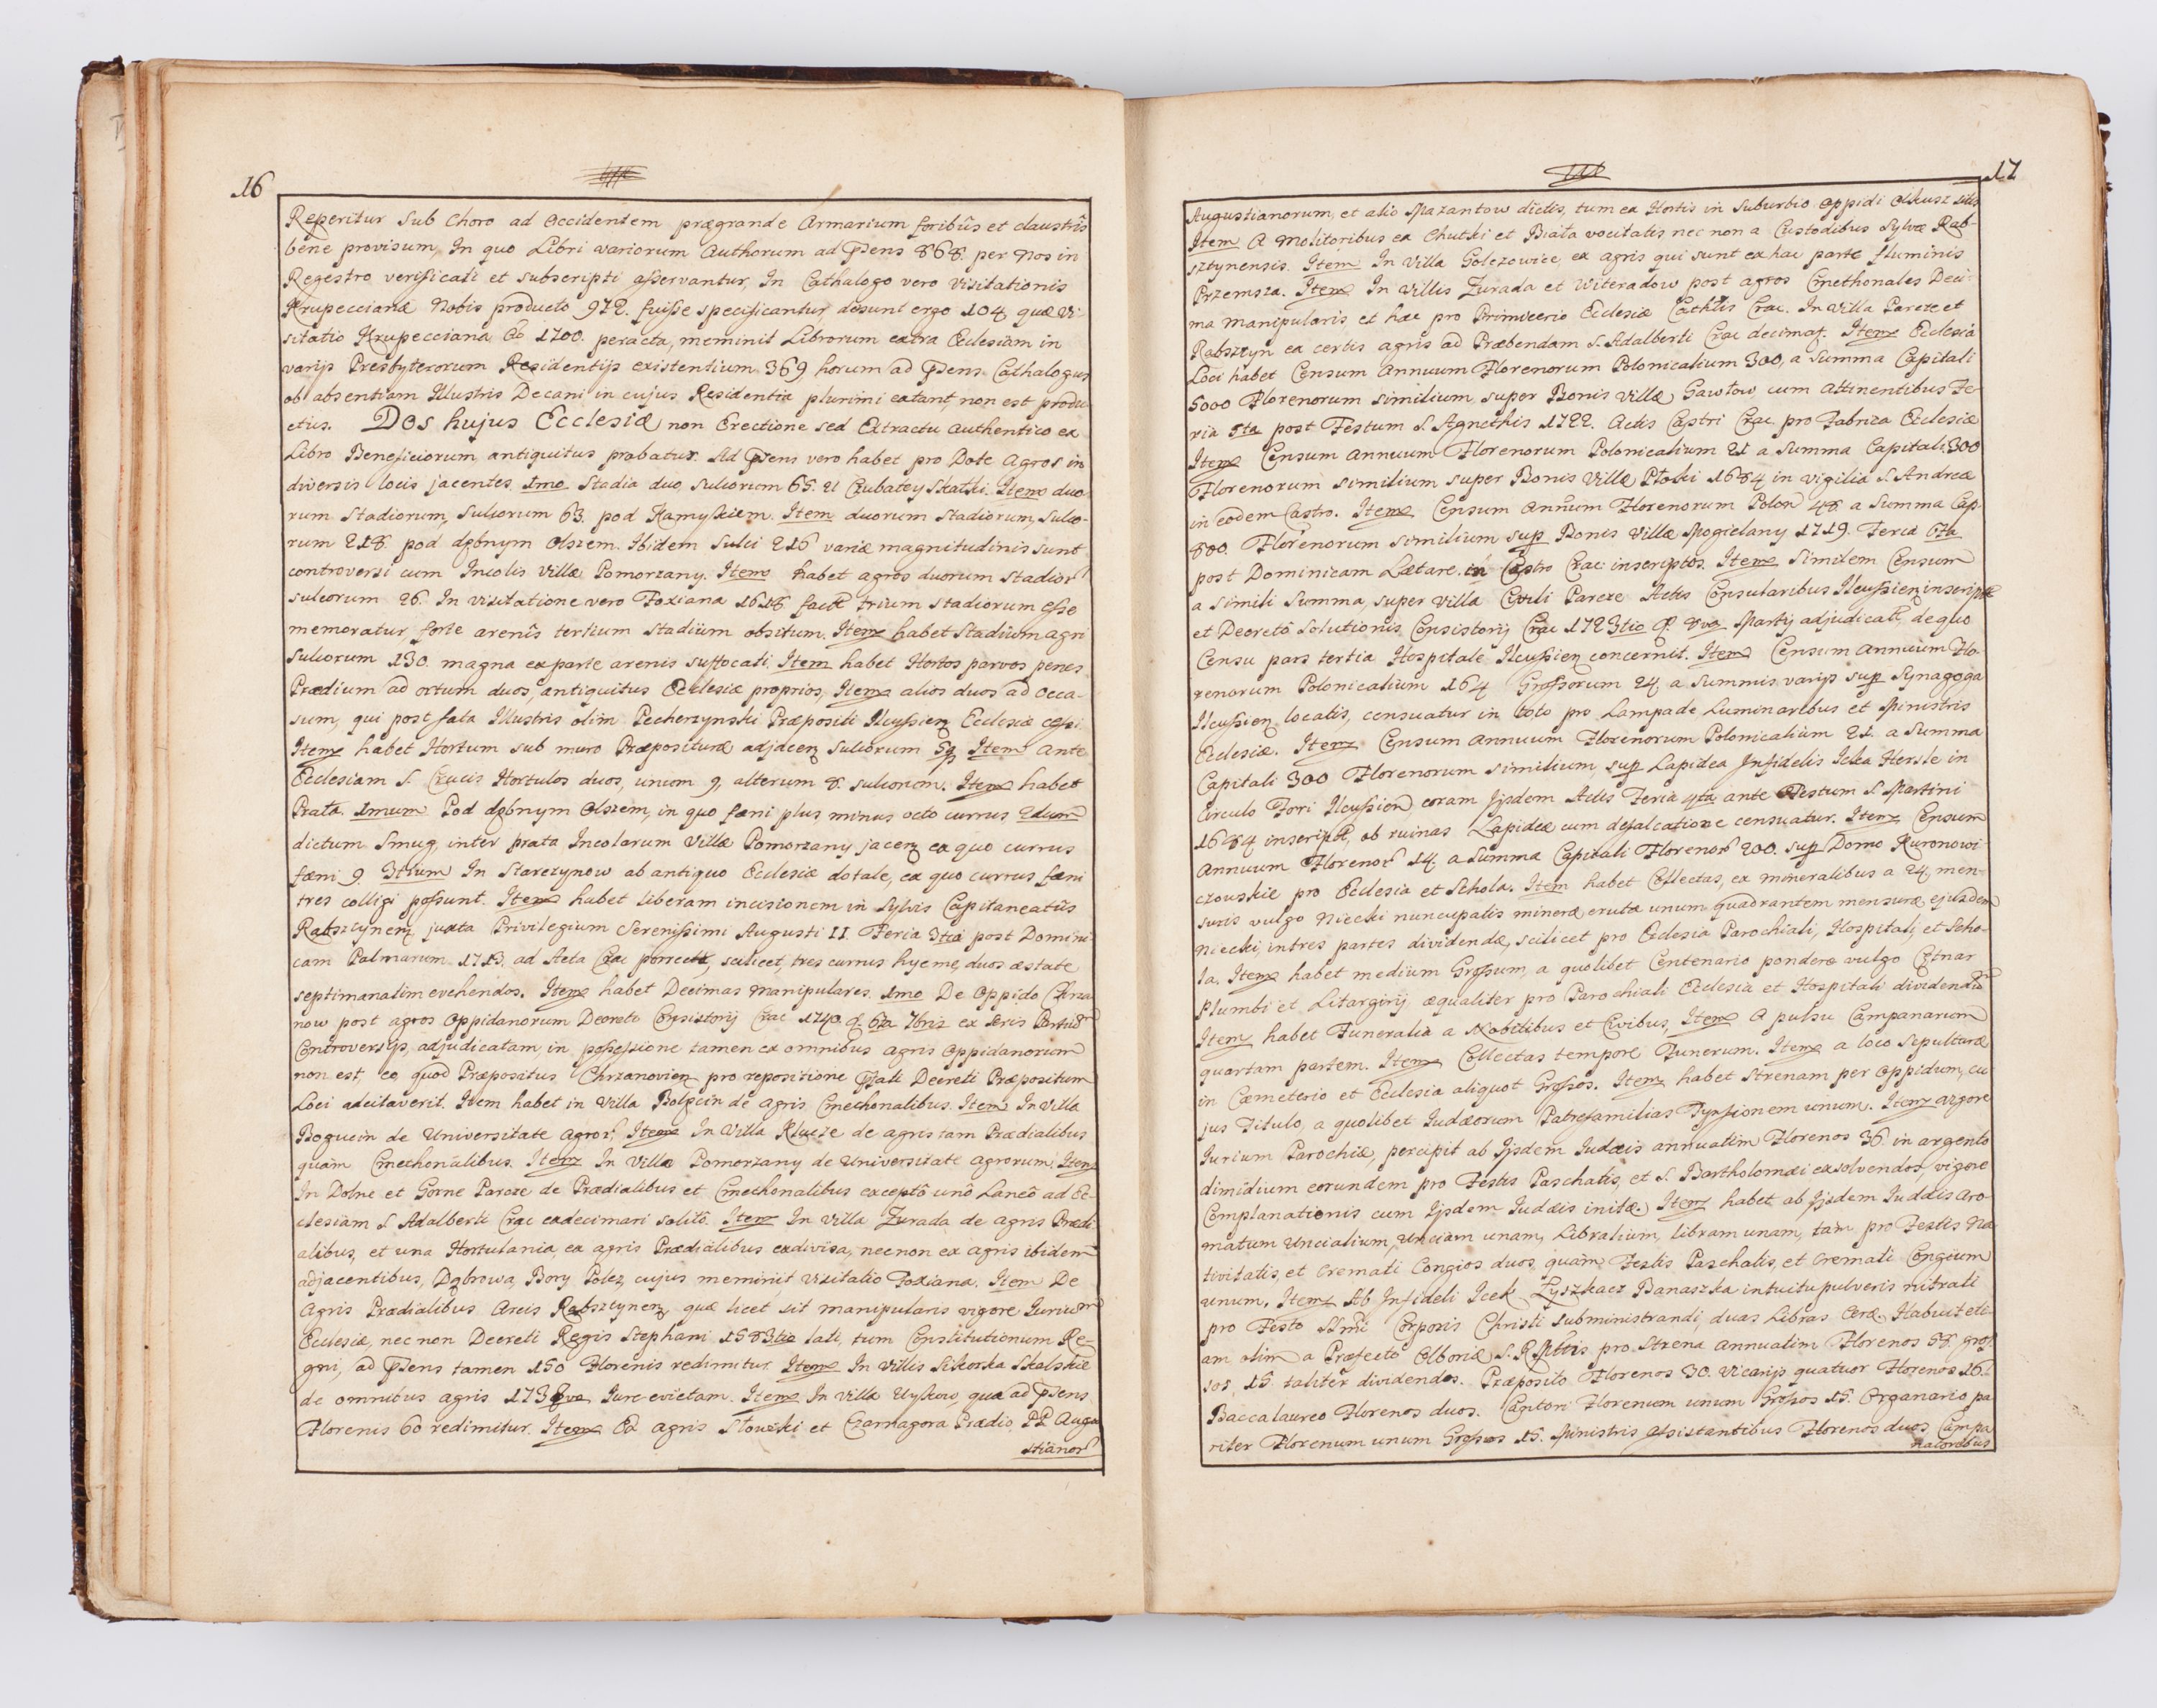 16
Reperitur sub Choro ad Occidentem prægrande Armarium foribus et claustris
bene provisum, In quo Libri variorum Authorum ad psens 868. per Nos in
Regestro verificati et subscripti asservantur, In Cathalogo vero Visitationis
Krupeccianæ Nobis producto 972. fuisse specificantur desunt ergo 104 quæ Vi-
sitatio Krupecciana 1700. peracta, meminit Librorum extra Ecclesiam in
varijs Presbyterorum Residentijs existentium 369 horum ad psens Cathalogus
ob absentiam Illustris Decani in cujus Residentia plurimi extant, non est produ-
ctus. Dos hujus Ecclesiæ non Erectione sed Extractu authentico ex
Libro Beneficiorum antiquitus probatur. Ad psens vero habet pro Dote Agros in
diversis locis jacentes. 1mo Stadia duo, sulcorum 65. U Czubatey Skałki. Item duo-
rum Stadiorum, sulcorum 63. pod Kamyskiem. Item duorum Stadiorum, sulco-
rum 218. pod dębnym Olszem. Ibidem sulci 216 variæ magnitudinis sunt
controversi cum Incolis Villæ Pomorzany. Item habet agros duorum stadior
sulcorum 26. In Visitatione vero Foxiana 1618 trium stadiorum esse
memoratur, forte arenis tertium stadium obsitum. Item habet Stadium agri
sulcorum 130. magna ex parte arenis suffocati. Item habet Hortos parvos penes
Prædium ad ortum duos, antiquitus Ecclesiæ proprios, Item alios duos ad occa-
sum, qui post fata Illustris olim Pecherzynski Præpositi Ilcussien Ecclesiæ cessi.
Item habet Hortum sub muro Præpositura adjacen sulcorum Item ante
Ecclesiam S. Crucis Hortulos duos, unum 9, alterum 8. sulcorum. Item habet
Prata. 1mum Pod dębnym Olszem, in quo fæni plus minus octo currus 2dum
dictum Smug, inter prata Incolarum Villæ Pomorzany jacen ex quo currus
fæni 9. 3tium In Starczynow ab antiquo Ecclesiæ dotale, ex quo currus fæni
tres colligi possunt. Item habet liberam incisionem in Sylvis Capitaneatus
Rabsztynen juxta Privilegium Serenissimi Augusti II. Feria 3tia post Domini-
cam Palmarum 1713. ad Acta Crac porrect, scilicet, tres currus hyeme, duos æstate
septimanatim evehendos. Item habet Decimas Manipulares. 1mo De Oppido Chrza-
now post agros Oppidanorum Decreto Consistorij Crac 1740. d. 6ta 7bris ex
Controversijs adjudicatam, in possessione tamen ex omnibus agris Oppidanorum
non est, eo, quod Præpositus Chrzanovien pro repositione Decreti Præpositum
Loci adcitaverit. Item habet in Villa Bolęcin de agris Cmethonalibus. Item In Villa
Bogucin de Universitate Agror, Item In Villa Klucze de agris tam Prædialibus
quam Cmethonalibus. Item In Villa Pomorzany de Universitate agrorum. Item
In Dolne et Gorne Parcze de Prædialibus et Cmethonalibus exceptô unô Laneô ad Ec-
clesiam S. Adalberti Crac exdecimari solitô. Item In Villa Zurada de agris Prædi-
alibus, et una Hortulania, ex agris Prædialibus exdivisa, necnon ex agris ibidem
adjacentibus, Dąbrowa, Bory Polez, cujus meminit Visitatio Foxiana. Item De
Agris Prædialibus Arcis Rabsztynen quæ licet sit manipularis vigore Jurium
Ecclesiæ, nec non Decreti Regis Stephani 1583tio lati, tum Constitutionum Re-
gni, ad psens tamen 150 Florenis redimitur. Item In Villis Sikorka Skalskie
de omnibus agris Jure evictam. Item In Villa Uyskow, quæ ad psens
Florenis 60 redimitur. Item Ex agris Słowiki et Czarnagora Prædio PP Augu-
stianor
17
Augustianorum, et alio Mazantow dictis, tum ex Hortis in Suburbio Oppidi Olkusz sitis
Item A Molitoribus ex Chutki et Biała vocitatis nec non a Custodibus Sylvæ Rab-
sztynensis. Item In Villa Golczowice, ex agris qui sunt ex hac parte fluminis
Przemsza. Item In Villis Zurada et Witeradow post agros Cmethonales Deci-
ma Manipularis, et hæc pro Primicerio Ecclesiæ Cathlis Crac. In Villa Parcze et
Rabsztyn ex certis agris ad Præbendam S. Adalberti Crac decimat. Item Ecclesia
Loci habet Censum Annuum Florenorum Polonicalium 300, a Summa Capitali
5000 Florenorum similium, super Bonis Villæ Gawłow cum Attinentibus Fe-
ria 5ta post Festum S. Agnethis 1722. Actis Castri Crac pro Fabrica Ecclesiæ
Item Censum Annuum Florenorum Polonicalium 21 a Summa Capitali 300
Florenorum similium super Bonis Villæ Płoki 1684 in vigilia S. Andreæ
in eodem Castro. Item Censum Annum Florenorum Polon 48. a Summa Cap
800. Florenorum similium sup Bonis Villæ Mogielany 1719. Feria 6ta
post Dominicam Lætare, in Castro Crac inscriptos. Item Similem Censum
a simili Summa, super Villa Civili Parcze Actis Consularibus Ilcussien inscript
et Decreto Solutionis Consistorij Crac 1723tio d. 8va Martij adjudicat, de quo
Censu pars tertia Hospitale Ilcussien concernit. Item Censum Annuum Flo-
renorum Polonicalium 164 Grossorum 24 a Summis varijs sup Synagoga
Ilcussien locatis, censuatur in toto pro Lampade Luminaribus et Ministris
Ecclesiæ. Item Censum Annuum Florenorum Polonicalium 21. a Summa
Capitali 300 Florenorum similium, sup Lapidea Infidelis Icka Hersle in
Circulo Fori Ilcussien, coram Ijsdem Actis Feria 4ta ante Festum S. Martini
1684 inscript, ob ruinas Lapideæ cum defalcatione censuatur. Item Censum
Annuum Florenor 14. a Summa Capitali Florenor 200. sup Domo Kuronowi-
czowskie pro Ecclesia et Schola. Item habet Collectas, ex mineralibus a 24 men-
suris vulgo Niecki nuncupatis mineræ erutæ unum quadrantem mensuræ ejusdem
Niecki, in tres partes dividendæ, scilicet pro Ecclesia Parochiali, Hospitali, et Scho-
la. Item habet medium Grossum, a quolibet Centenario pondere vulgo Cetnar
Plumbi et Litargirij æqualiter pro Parochiali Ecclesia et Hospitali dividend
Item habet Funeralia a Nobilibus et Civibus, Item A pulsu Campanarum
quartam partem. Item Collectas tempore Funerum. Item a loco Sepulturæ
in Cæmeterio et Ecclesia aliquot Grossos. Item habet Strenam per Oppidum, cu-
jus Titulo, a quolibet Iudæorum Patrefamilias Tynfionem unum. Item vigore
Iurium Parochiæ, percipit ab Ijsdem Iudæis annuatim Florenos 36. in argento
dimidium eorundem pro Festis Paschatis, et S. Bartholomæi exsolvendos, vigore
Complanationis cum Ijsdem Iudæis initæ. Item habet ab Ijsdem Iudæis aro-
matum Uncialium, Unciam unam, Libralium, libram unam, tam pro Festis Na-
tivitatis, et Cremati Congios duos, quam Festis Paschalis, et Cremati Congium
unum. Item Ab Infideli Icek Łyszkacz Banaszka intuitu pulveris nitrati
pro Festo SSmi Corporis Christi subministrandi, duas Libras Ceræ. Habuit eti-
am olim a Præfecto Olboriæ S. R. Mttis pro Strena annuatim Florenos 58. gros-
sos 15 taliter dividendos. Præposito Florenos 30. Vicarijs quatuor Florenos 16.
Baccalaureo Florenos duos. Cantori Florenum unum Grossos 15. Organario pa-
riter Florenum unum Grossos 15. Ministris Assistentibus Florenos duos, Campa-
natoribus